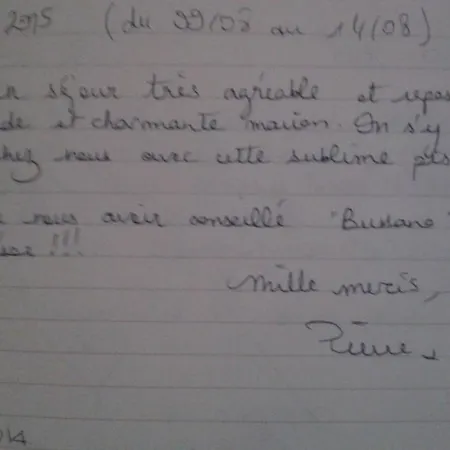 2015 (du 09/08 au 14/08)
n séjour très agréable et repos
de et charmante maison. On s'y
chez nous avec cette sublime
nous avoir conseillé "Bussano"
!!!
Mille mercis,